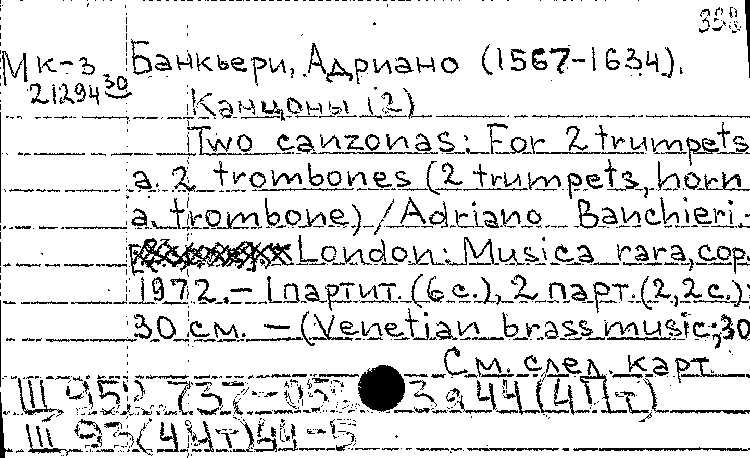 Мк-з Банкьери, Адриано (1567-1634).
21294 30
Канцоны (2)
Two canzonas: For 2 trumpets
a. 2 trombones (2 trumpets, horn
a. trombone) / Adriano Banchieri.-
London: Musica rara, cop.
1972.- 1партит. (6 с.), 2 парт. (2,2 с.);
30 см. - (Venetian brass music; 30
См. след. карт.
III 93(4Ит)44-5